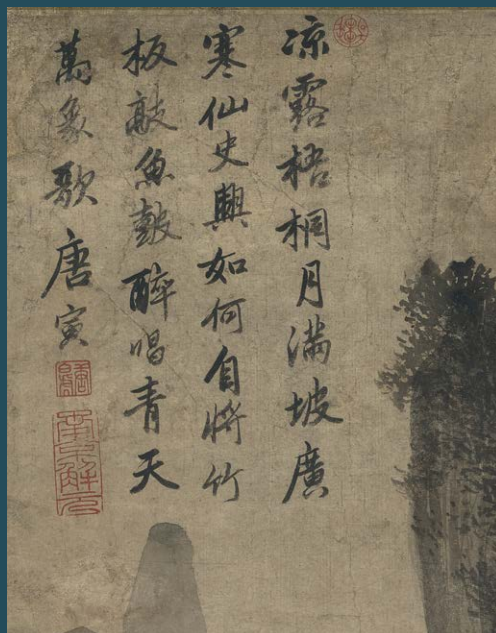 涼露梧桐月滿坡廣
寒仙史興如何自將竹
板敲魚皷醉唱青天
萬象歌唐寅
南京解元